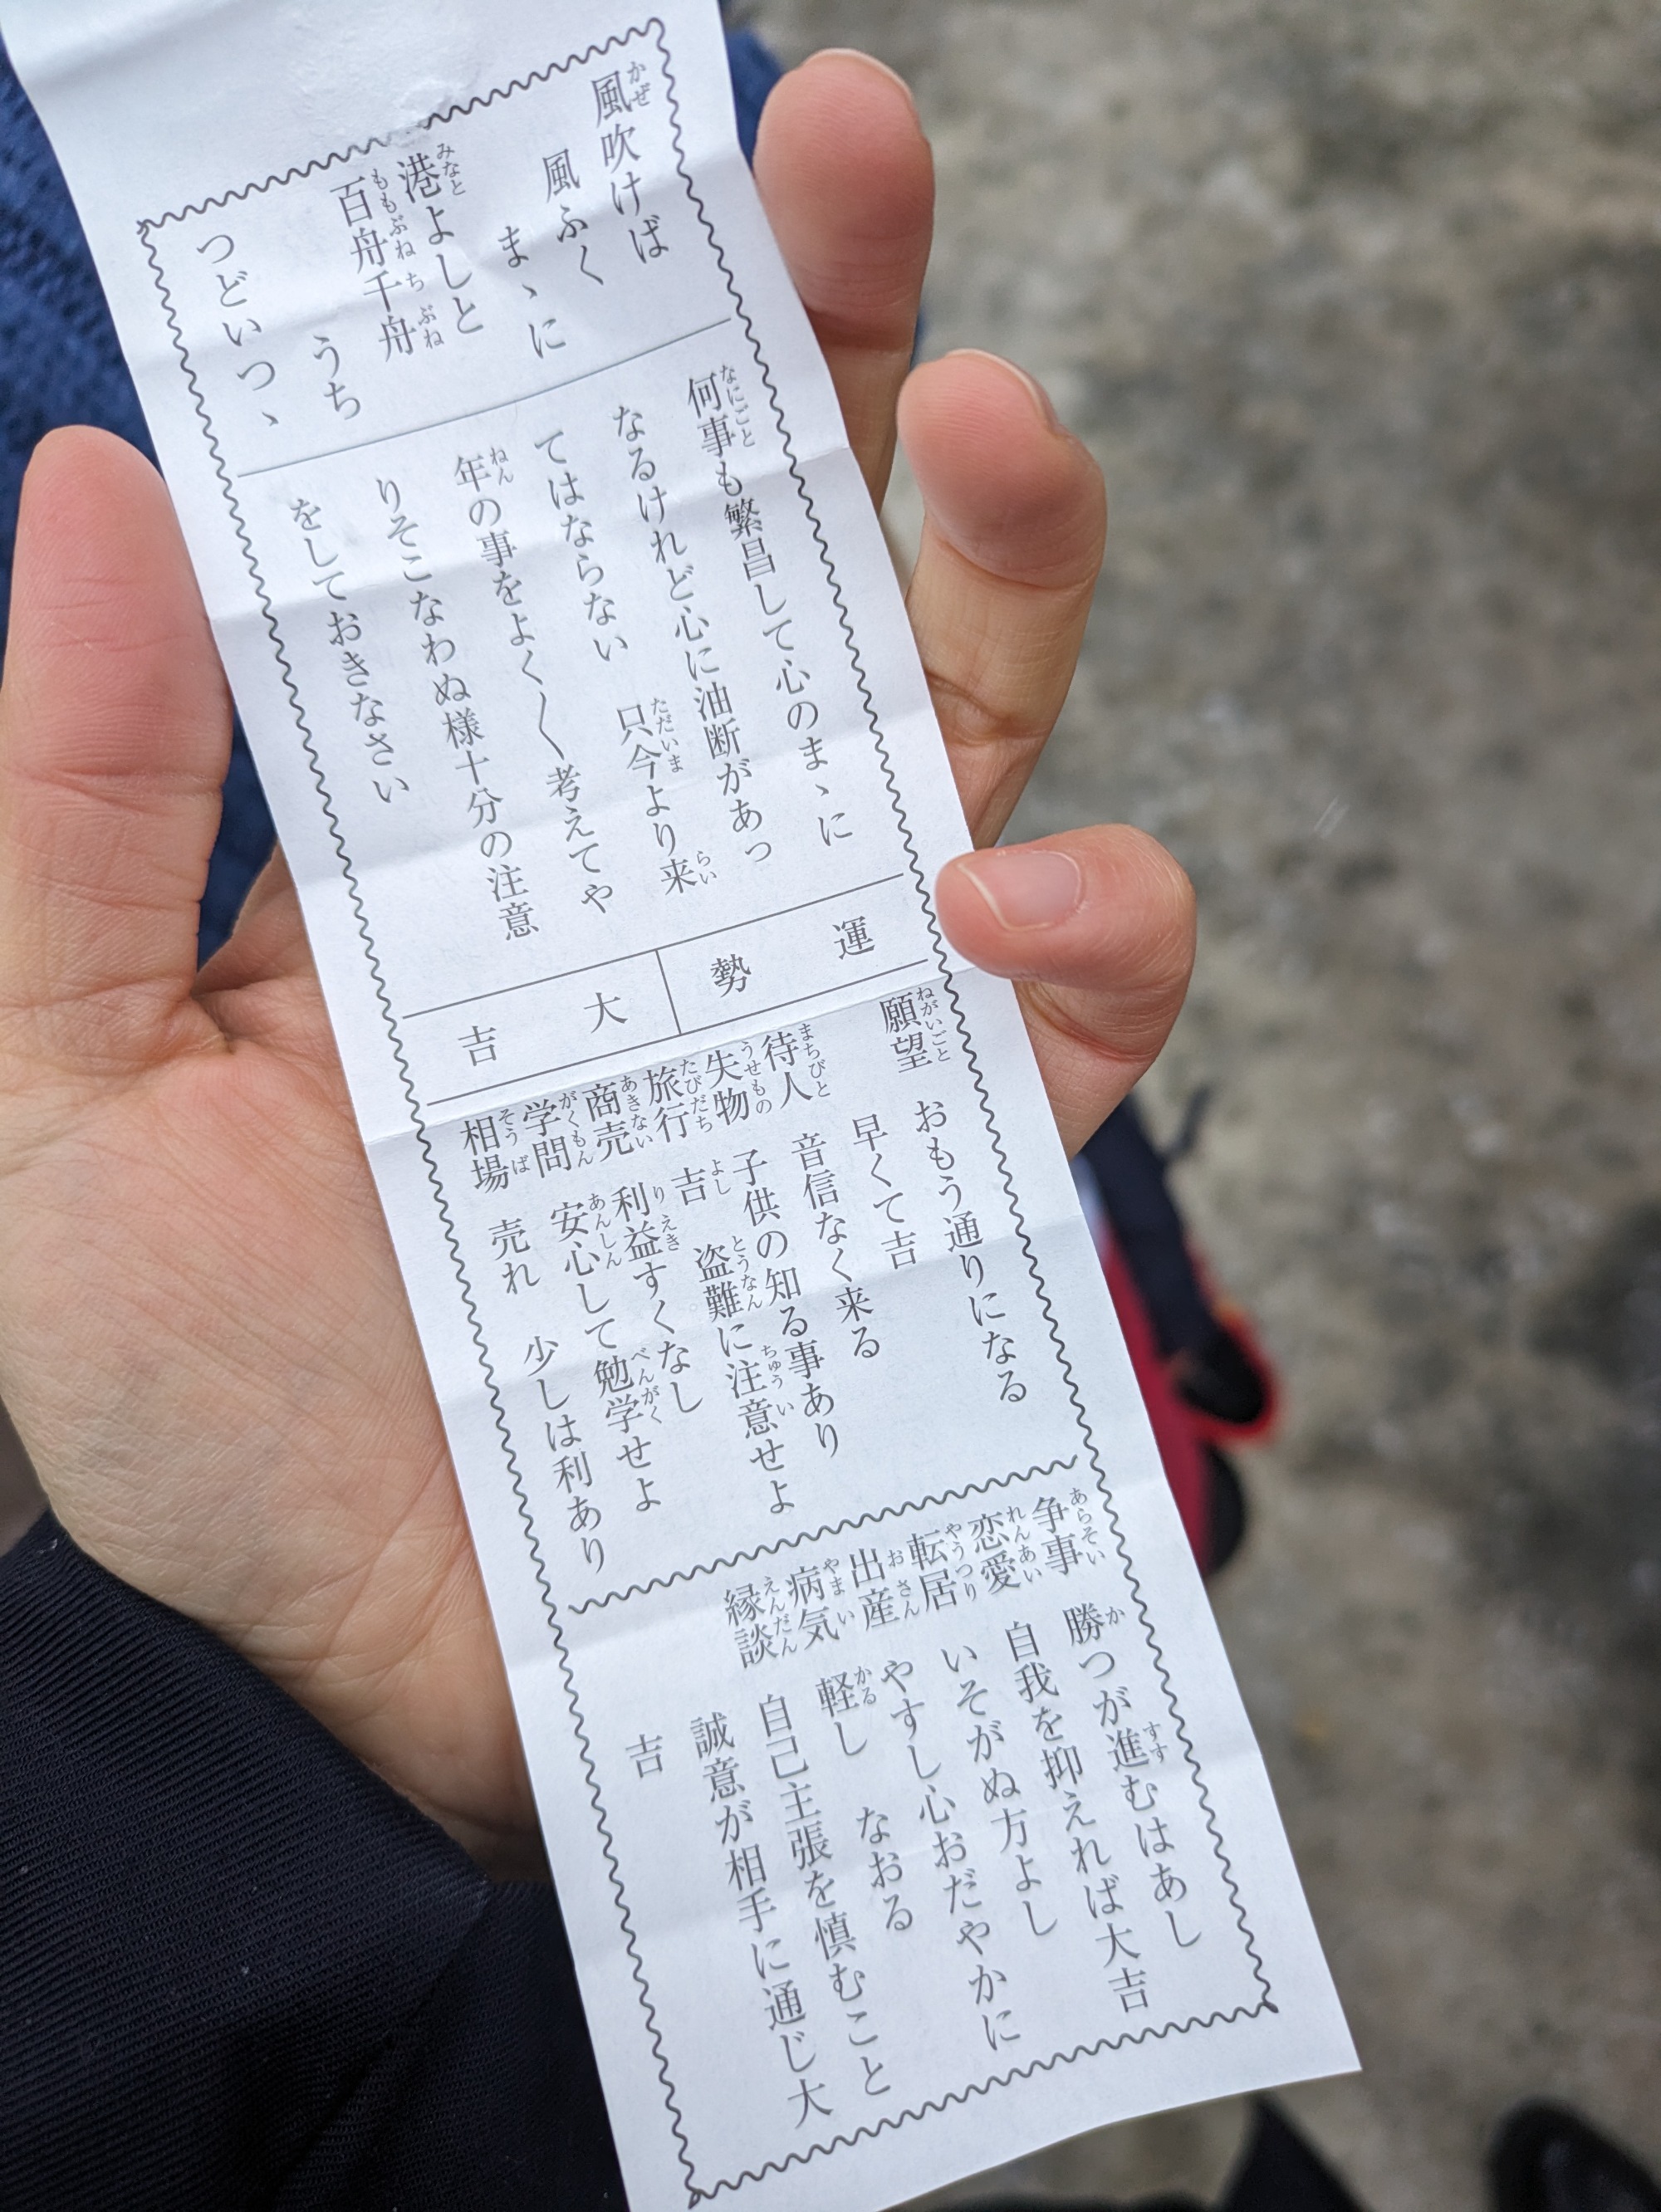 風吹けば
風ふく
まゝに
港よしと
百舟千舟
うち
つどいつゝ
何事も繁昌して心のまゝに
なるけれど心に油断があっ
てはならない 只今より来
年の事をよく〱考えてや
りそこなわぬ様十分の注意
をしておきなさい
運勢
大吉
願望 おもう通りになる
早くて吉
待人 音信なく来る
失物 子供の知る事あり
旅行 吉 盗難に注意せよ
商売 利益すくなし
学問 安心して勉学せよ
相場 売れ 少しは利あり
争事 勝つが進むはあし
恋愛 自我を抑えれば大吉
転居 いそがぬ方よし
出産 やすし心おだやかに
病気 軽し なおる
縁談 自己主張を慎むこと
誠意が相手に通じ大
吉